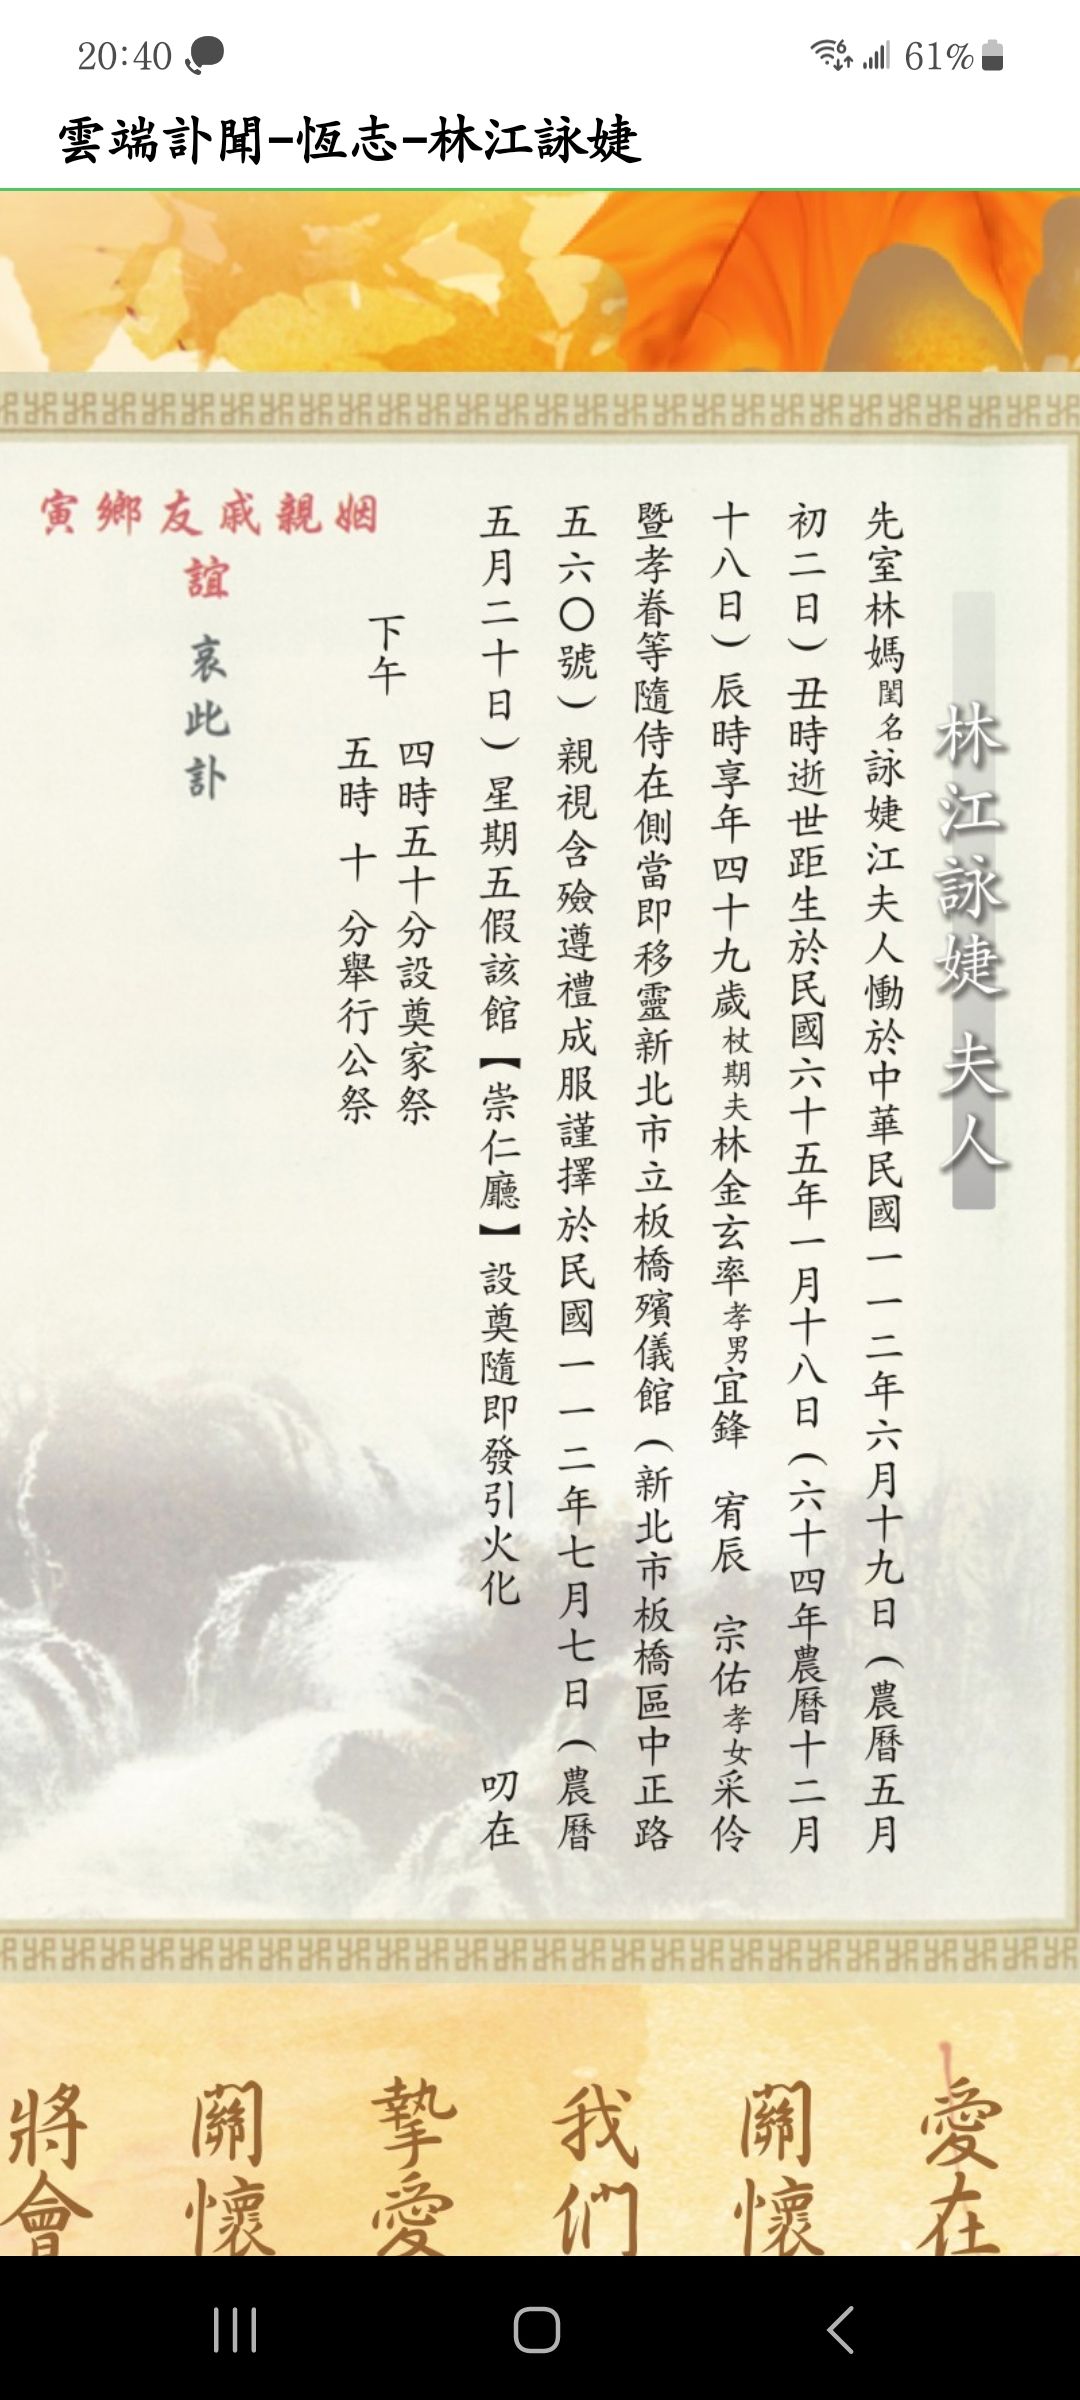 20:40
61%
雲端訃聞-恆志-林江詠婕
林江詠婕 夫人
先室林媽閨名詠婕江夫人慟於中華民國一一二年六月十九日(農曆五月
初二日)丑時逝世距生於民國六十五年一月十八日(六十四年農曆十二月
十八日)辰時享年四十九歲杖期夫林金玄率孝男宜鋒 宥辰 宗佑孝女采伶
暨孝眷等隨侍在側當即移靈新北市立板橋殯儀館(新北市板橋區中正路
五六〇號)親視含殮遵禮成服謹擇於民國一一二年七月七日(農曆
五月二十日)星期五假該館【崇仁廳】設奠隨即發引火化 叨在
下午
四時五十分設奠家祭
五時十分舉行公祭
姻親戚友鄉寅
誼
哀此訃
愛在
關懷
我們
摯愛
關懷
將會